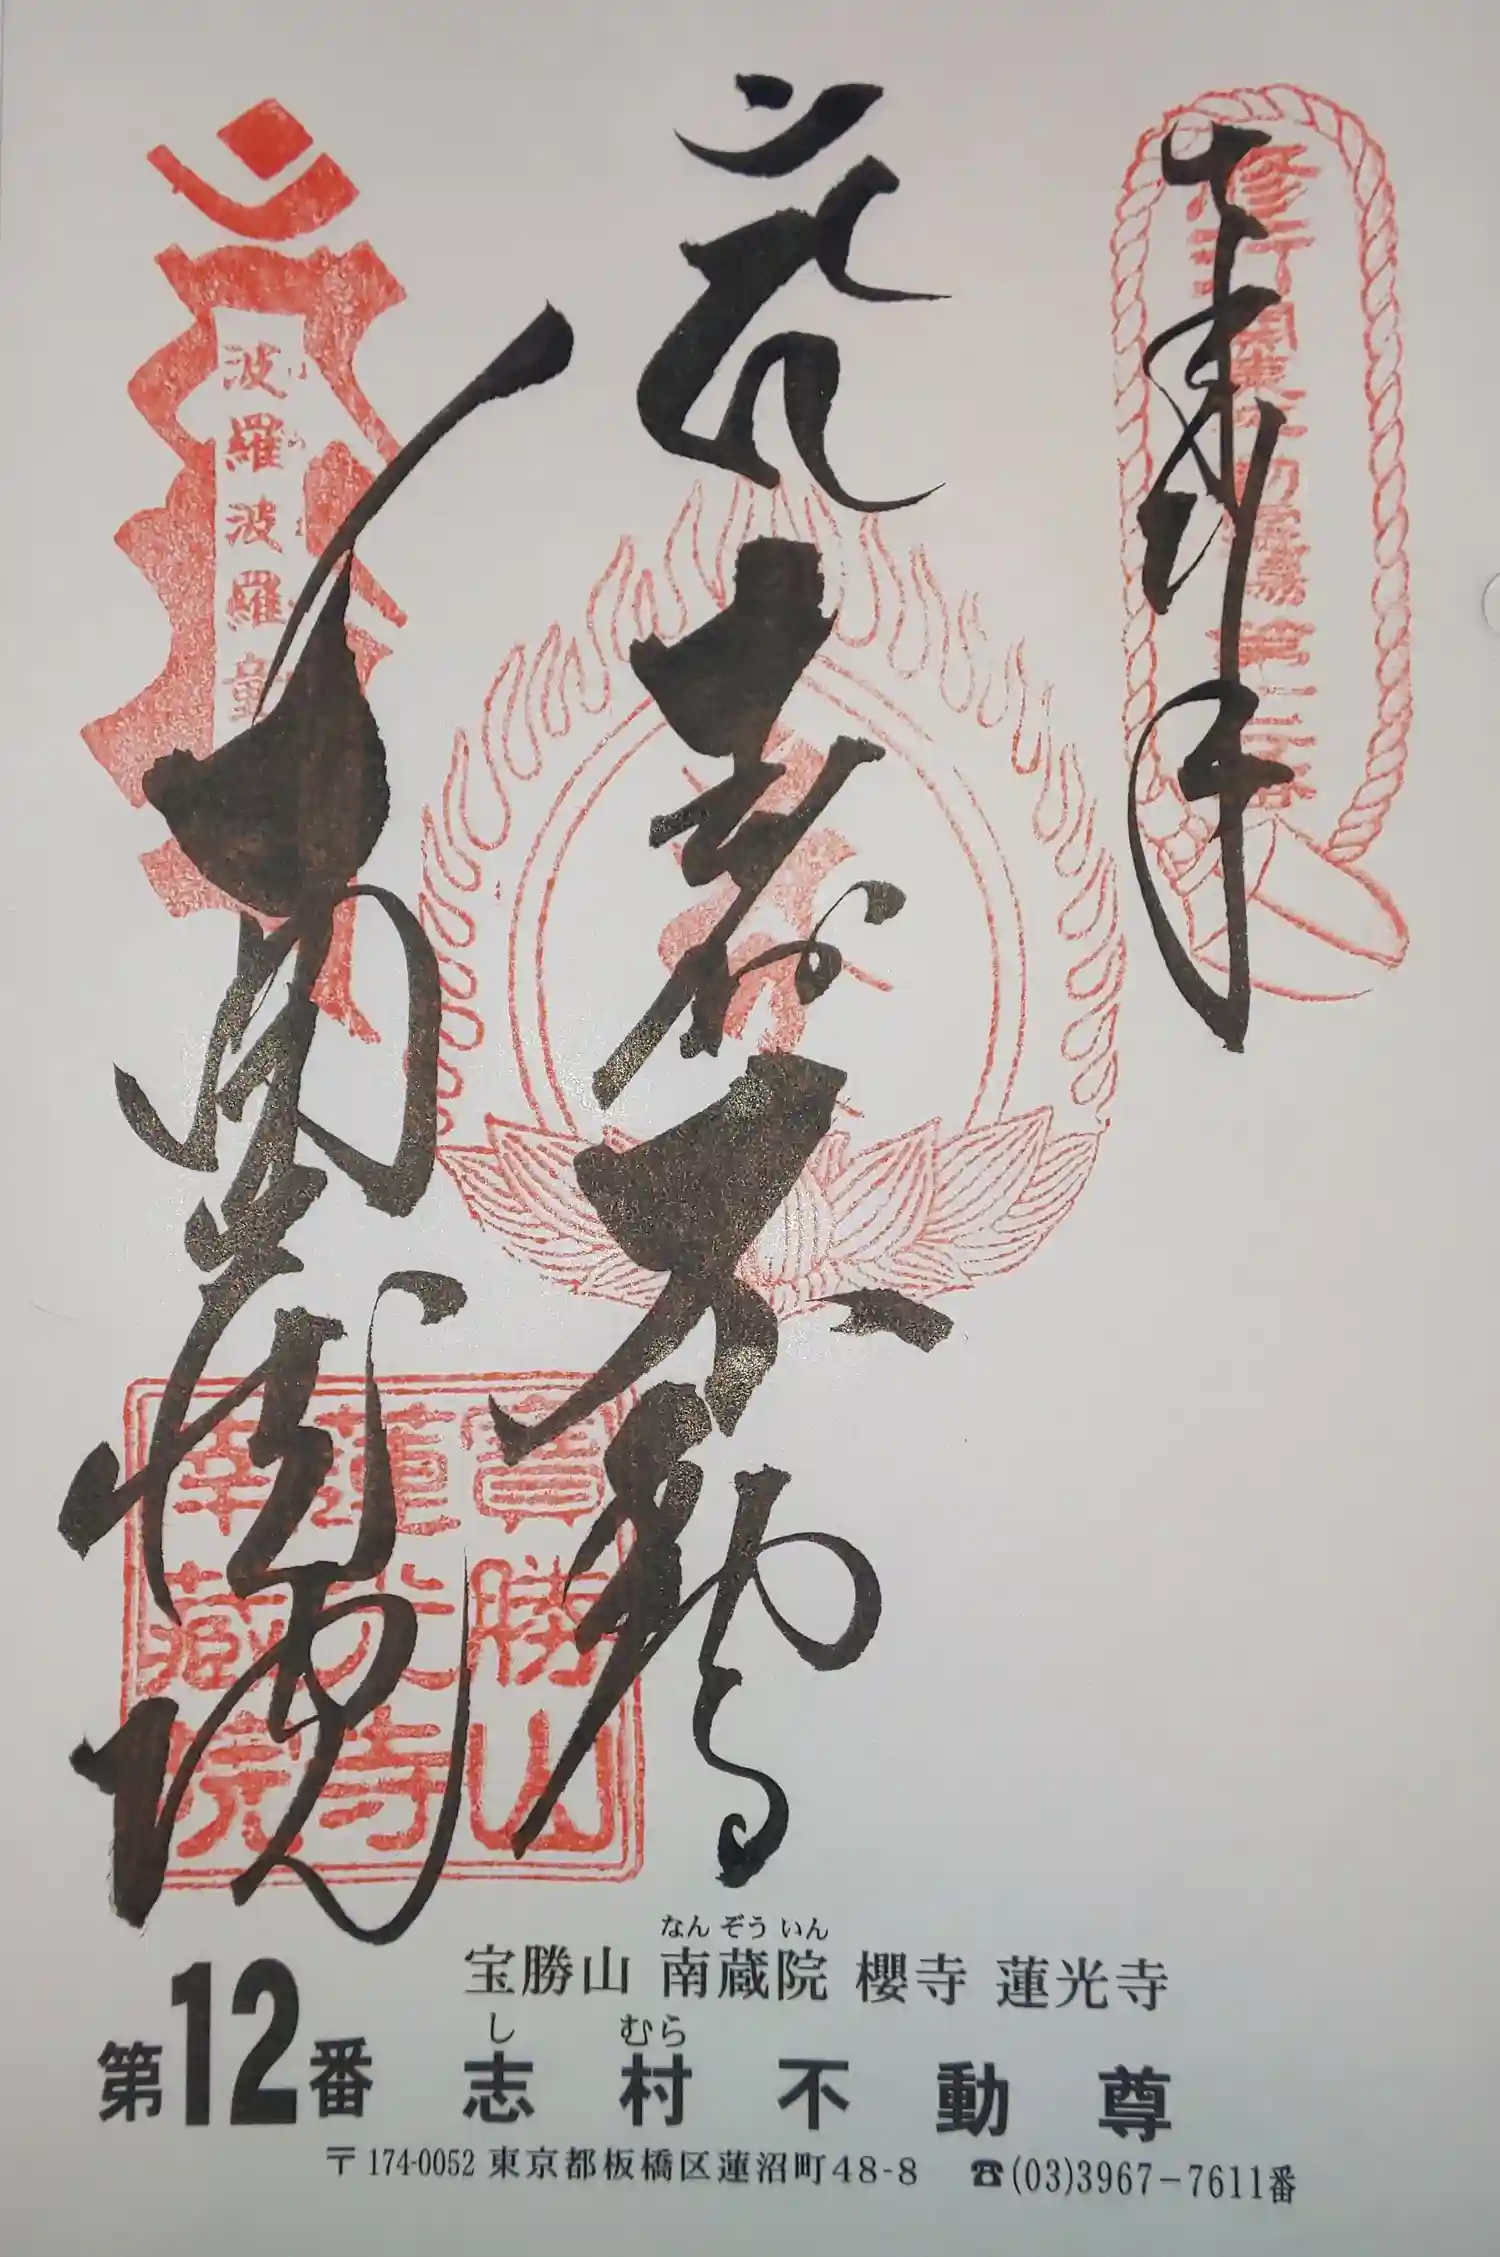 奉拝
修行 関東三十六不動霊場 第十二番
不動
波羅波羅童
南蔵院
寶勝山
蓮光寺
幸蔵院
なん ぞう いん
宝勝山 南蔵院 櫻寺 蓮光寺
し むら
第12番 志村不動尊
〒174-0052 東京都板橋区蓮沼町48-8 ☎(03)3967-7611番